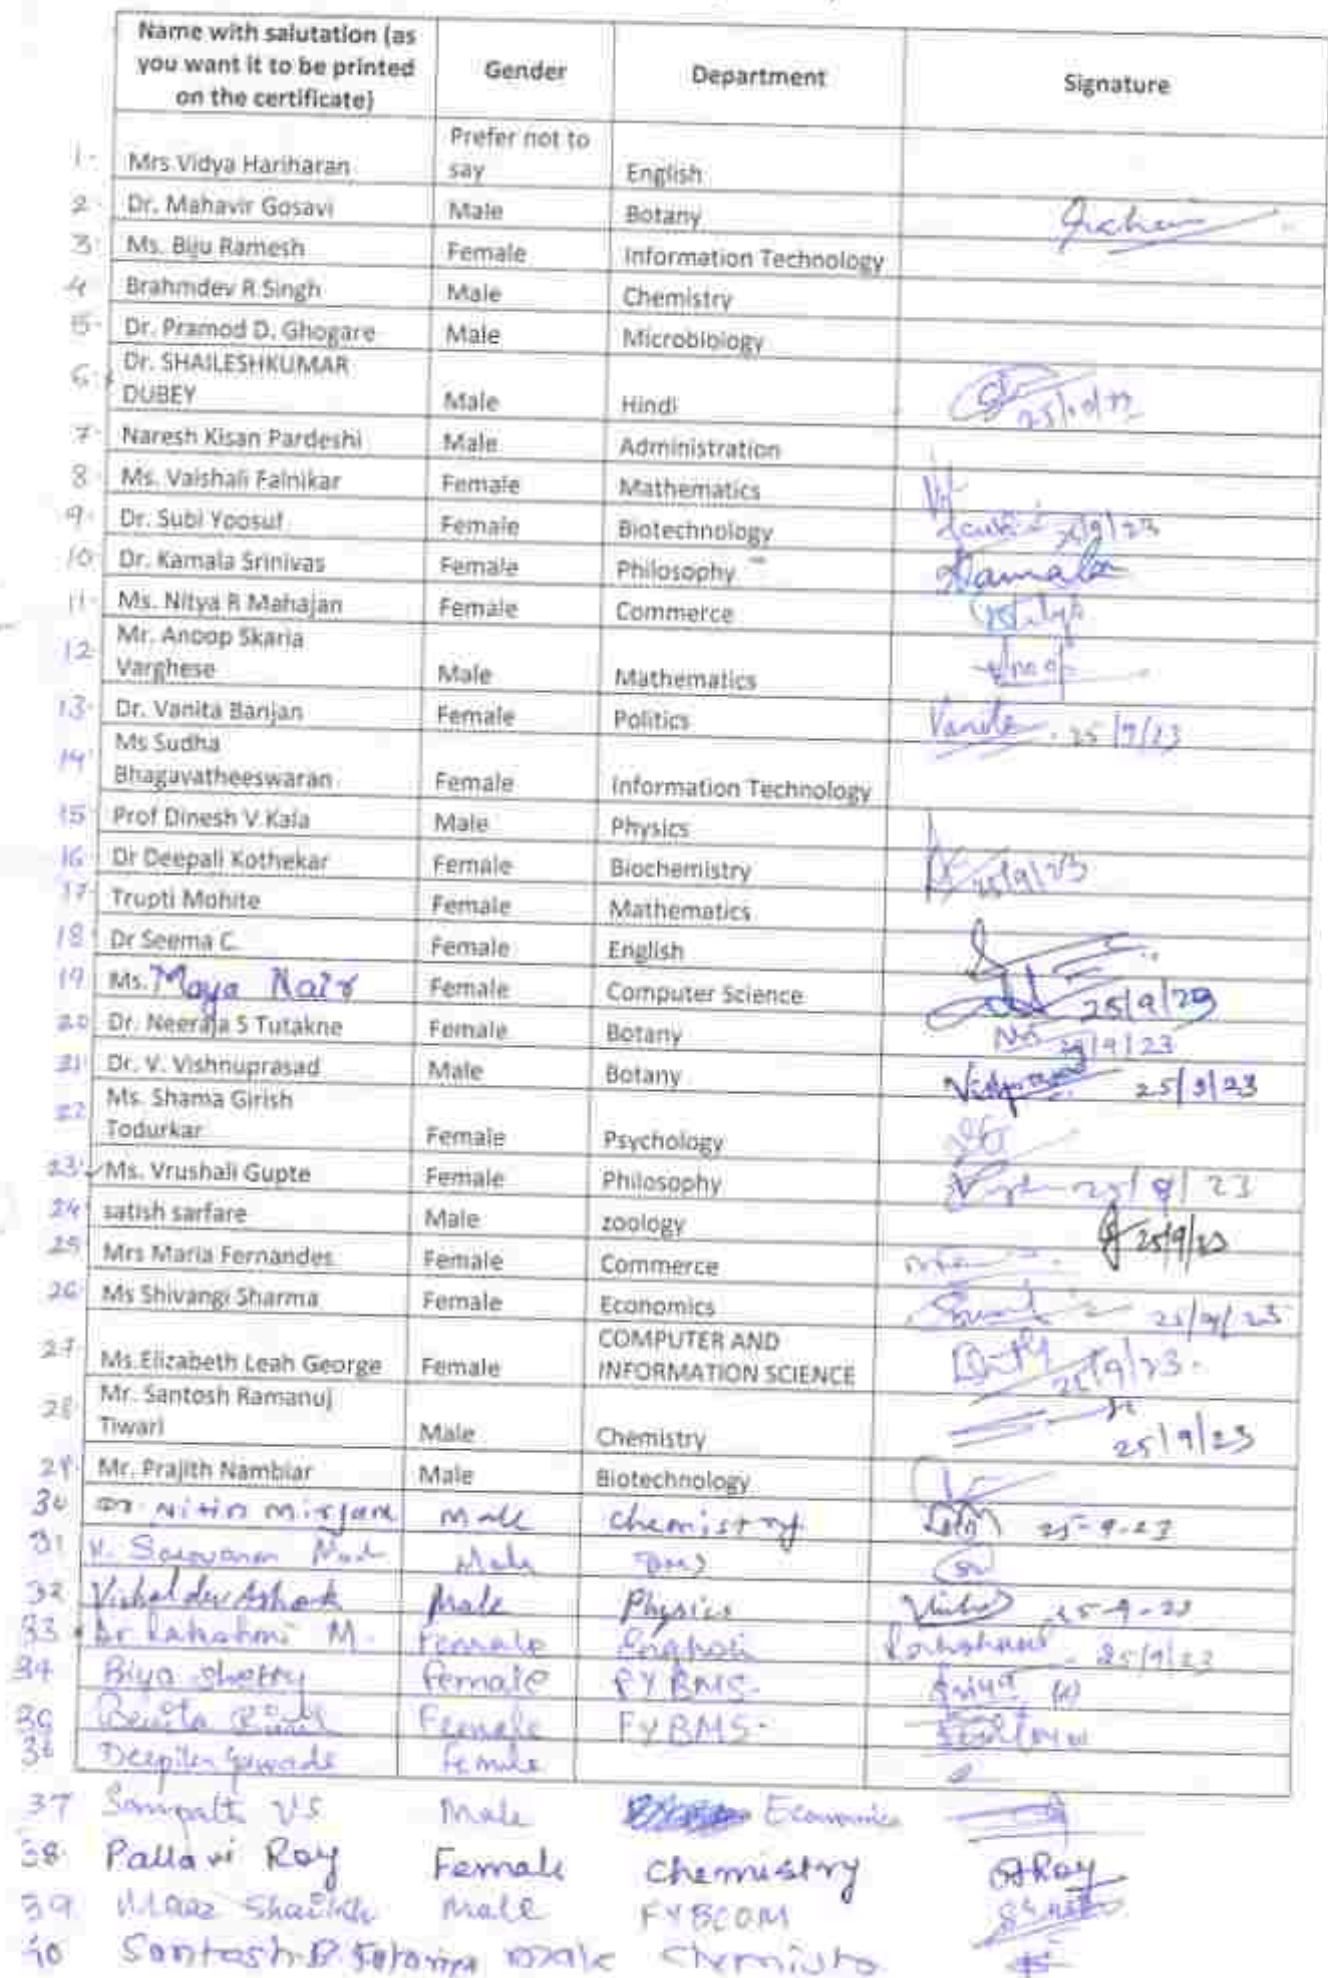 Name with salutation (as you want it to be printed on the certificate) Gender Department Signature
1. Mrs Vidya Hariharan Prefer not to say English
2. Dr. Mahavir Gosavi Male Botany
3. Ms. Biju Ramesh Female Information Technology
4. Brahmdev R Singh Male Chemistry
5. Dr. Pramod D. Ghogare Male Microbiology
6. Dr. SHAILESHKUMAR DUBEY Male Hindi
7. Naresh Kisan Pardeshi Male Administration
8. Ms. Vaishali Falnikar Female Mathematics
9. Dr. Subi Yoosuf Female Biotechnology /9/23
10. Dr. Kamala Srinivas Female Philosophy Kamala
11. Ms. Nitya R Mahajan Female Commerce
12. Mr. Anoop Skaria Varghese Male Mathematics Anoop
13. Dr. Vanita Banjan Female Politics Vanita 25/9/23
14. Ms Sudha Bhagavatheeswaran Female Information Technology
15. Prof Dinesh V Kala Male Physics
16. Dr Deepali Kothekar Female Biochemistry 25/9/23
17. Trupti Mohite Female Mathematics
18. Dr Seema C. Female English
19. Ms. Maya Nair Female Computer Science 25/9/23
20. Dr. Neeraja S Tutakne Female Botany /9/23
21. Dr. V. Vishnuprasad Male Botany 25/9/23
22. Ms. Shama Girish Todurkar Female Psychology
23. Ms. Vrushali Gupte Female Philosophy 25/9/23
24. satish sarfare Male zoology 25/9/23
25. Mrs Maria Fernandes Female Commerce
26. Ms Shivangi Sharma Female Economics 25/9/23
27. Ms.Elizabeth Leah George Female COMPUTER AND INFORMATION SCIENCE 25/9/23.
28. Mr. Santosh Ramanuj Tiwari Male Chemistry 25/9/23
29. Mr. Prajith Nambiar Male Biotechnology
30 Dr. Nitin Mirjane Male chemistry 25-9-23
31 Male
32 Vishal dev Ashok Male Physics 25-9-23
33 Dr Lakshmi M. Female English 25/9/23
34 Riya Shetty Female FYBMS.
35 Female FYBMS.
36 Female
37 Sampath V S Male Economics
38. Pallavi Roy Female chemistry Roy
39 Maaz Shaikh Male FYBCOM
40 Santosh male